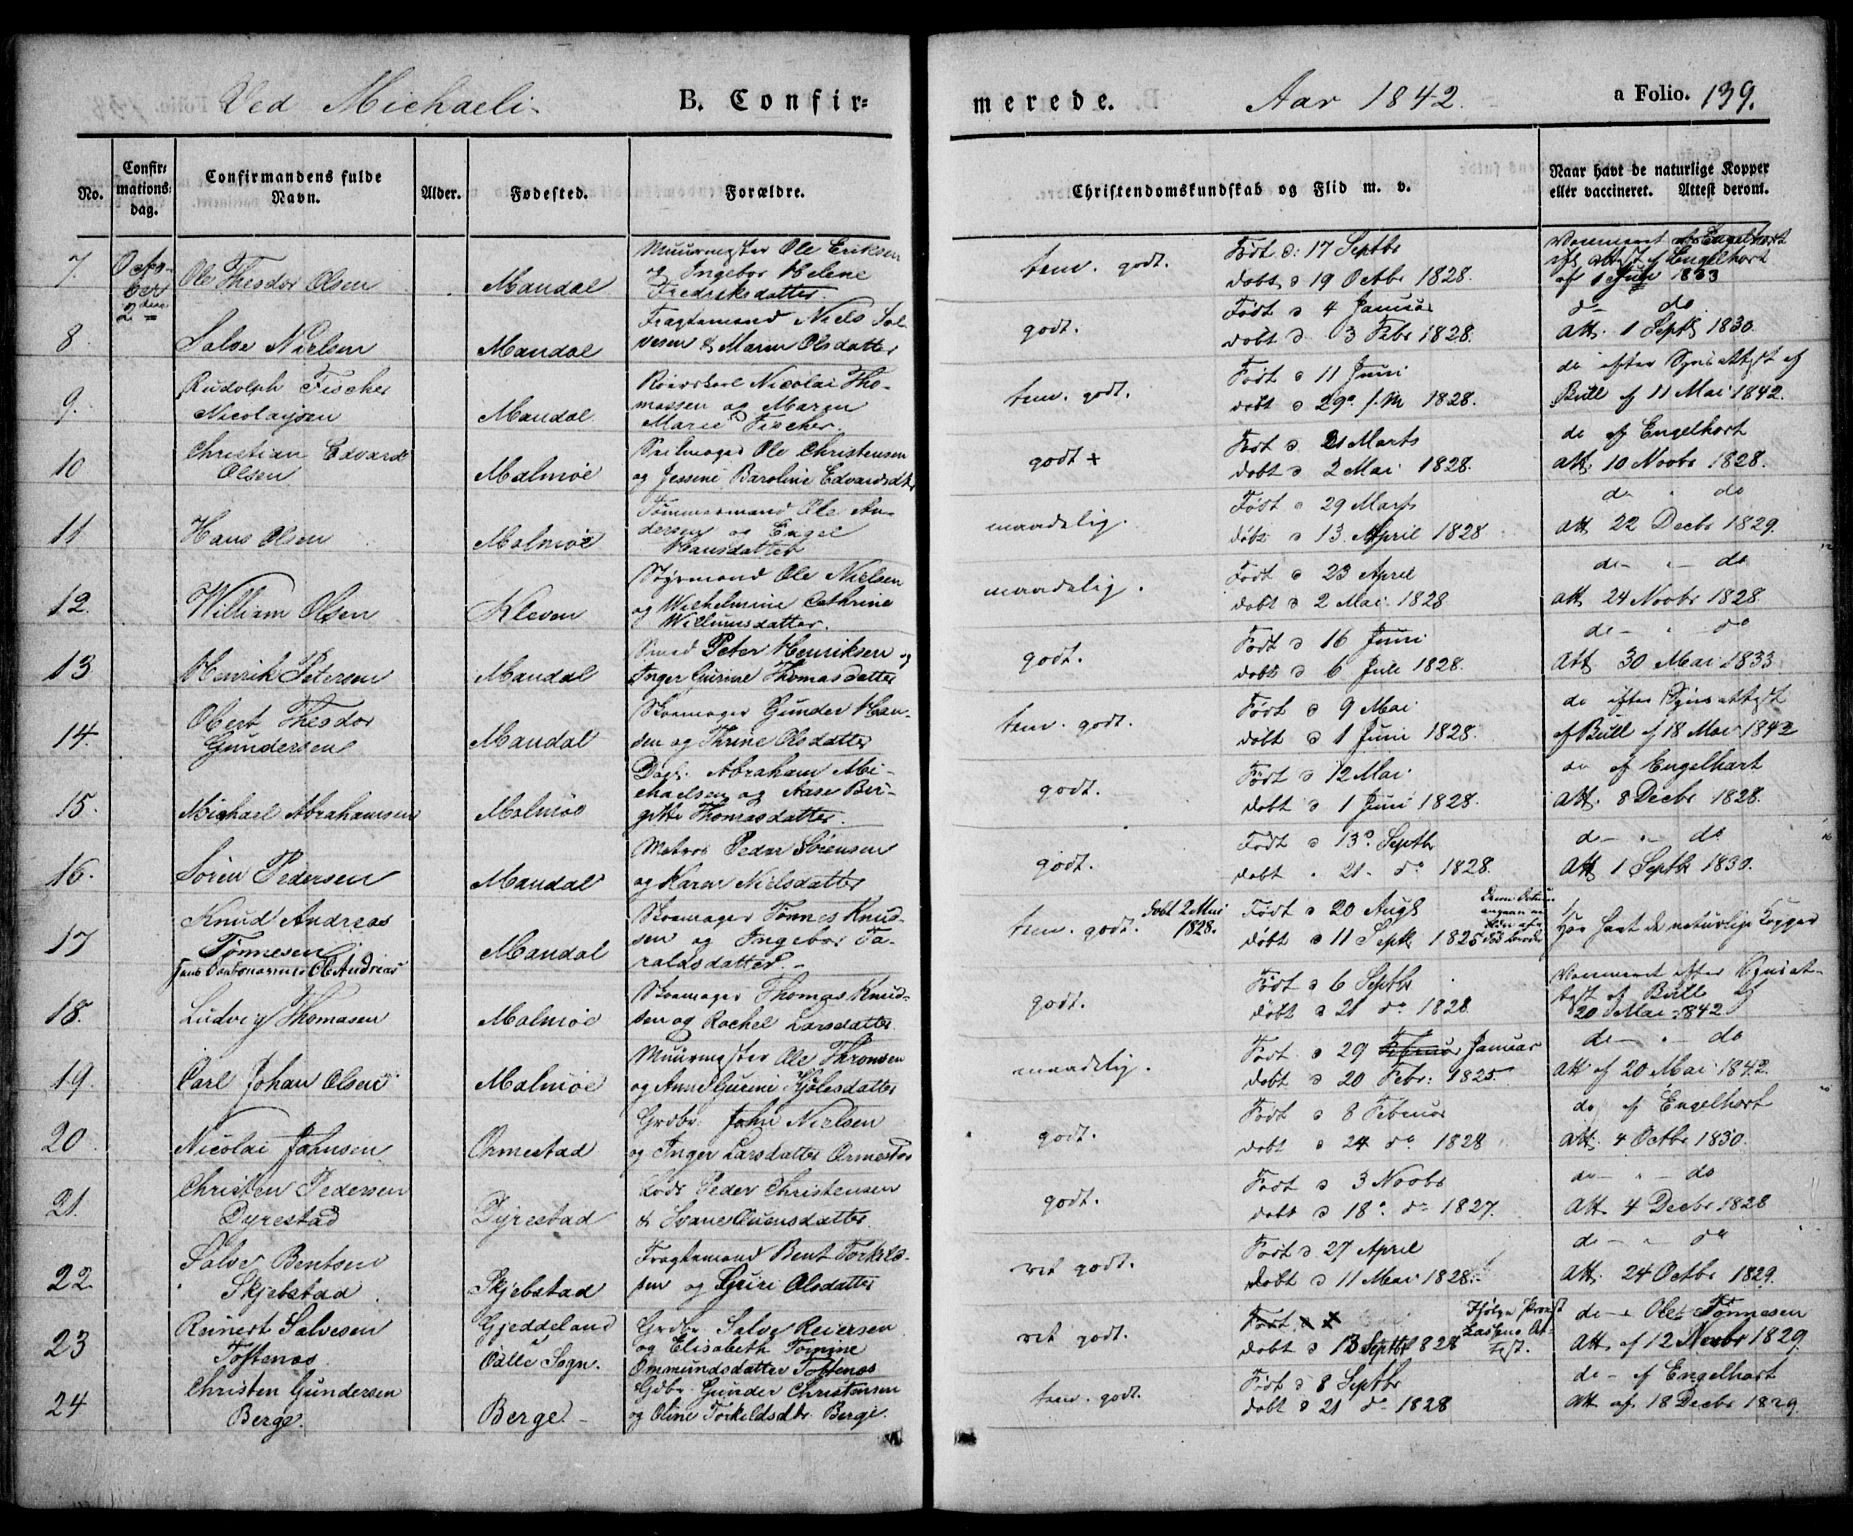 Ved Michaeli B. Confir= merede. Aar 1842. a Folio. 139.
No.
Confir=
mations=
dag.
Confirmandens fulde
Navn.
Alder.
Fødested.
Forældre.
Christendomskundskab og Flid m. v.
Naar havt de naturlige Kopper
eller vaccineret. Attest derom.
7.
Octo-
ber
2den
Ole Theodor Olsen
Mandal
Muurmester Ole Eriksen
og Ingebor Helene
Fredriksdatter.
tem. godt.
Født d: 17 Septbr
døbt d 19 Octbr 1828.
Vaccineret af Engelhart
attest af Engelhart
af 1 Juli 1833
8
Salve Nielsen
Mandal
Fragtemand Niels Sal-
vesen & Maren Olsdatter
godt.
Født d 4 Januar
døbt d 3 Febr 1828.
do do
Att. 1 Septb 1830.
9.
Rudolph Fischer
Nicolaysen
Mandal
Nicolai Tho-
massen og Maren
Marie Fischer.
tem. godt.
Født d 11 Juni
døbt d 29 s. M 1828.
do efter Synsattest af
Bull af 11 Mai 1842.
10
Christian Edvard
Olsen
Malmøe
Seilmager Ole Christensen
og Jessine Baroline Edvardsdtr
godt +
Født d 21 Marts
døbt d 2 Mai 1828.
do af Engelhart
Att. 10 Novbr 1828.
11
Hans Olsen
Malmøe
Tømmermand Ole An-
dersen og Engel
Hansdatter
maadelig.
Født d 29 Marts
døbt d 13 April 1828
do " do
Att 22 Decbr 1829.
12.
William Olsen
Kleven
Styrmand Ole Nielsen
og Wilhelmine Cathrine
Willumsdatter.
maadelig.
Født d 23 April
døbt d 2 Mai 1828
do - " - do
Att 24 Novbr 1828.
13
Henrik Petersen
Mandal
Smed Peter Henriksen og
Inger Gurine Thomasdatter
godt.
Født d 16 Juni
døbt d 6 Juli 1828.
do - " - do
Att 30 Mai 1833
14.
Obert Theodor
Gundersen
Mandal
Skoemager Gunder Han-
sen og Thrine Olsdatter
tem. godt.
Født d 9 Mai
døbt d 1 Juni 1828.
do efter Synsattest
af Bull af 18 Mai 1842
15.
Michael Abrahamsen
Malmøe
Abraham Mi-
chaelsen og Aase Bir-
gitte Thomasdatter.
godt.
Født d 12 Mai
døbt d 1 Juni 1828.
do af Engelhart
Att. 8 Decbr 1828.
16.
Søren Pedersen
Mandal
Matros Peder Sørensen
og Karen Nielsdatter
godt.
Født d 13 Septbr
døbt " 21 - do 1828.
do - " - do
Att 1 Septb 1830.
17
Knud Andreas
Tønnesen
Ole Andreas
Mandal
Skoemager Tønnes Knud-
sen og Ingebor Ta-
raldsdatter. -
tem. godt.
døbt 2 Mai
1828.
Født d 20 Aug
døbt d 11 Septb 1825
Har havt de naturlige Kopper
18.
Ludvig Thomasen
Malmøe
Skoemager Thomas Knud-
sen og Rachel Larsdatter
godt.
Født d 6 Septbr
døbt d 21 do 1828
Vaccineret efter Synsat-
test af Bull af
20 Mai 1842
19.
Carl Johan Olsen
Malmøe
Muurmester Ole Thronsen
og Anne Gurine Kjølesdatter
maadelig.
Født d 29 Februar Januar
døbt d 20 Febr: 1825.
do - " - do
Att af 20 Mai 1842.
20
Nicolai Johnsen
Ormestad
Grdbr. John Nielsen
og Inger Larsdatter Ormestad
godt.
Født d 8 Februar
døbt d 24 do 1828
do af Engelhart
Att. 4 Octbr 1830.
21.
Christen Pedersen
Dyrestad
Dyrestad
Lods Peder Christensen
& Svane Auensdatter.
godt.
Født d 3 Novbr
døbt d 18 do 1827.
do - " - do
Att. 4 Decbr 1828
22
Salve Bentsen
Skjebstad
Skjebstad
Fragtemand Bent Torkels-
sen og Guri Olsdatter
ret godt.
Født d 27 April
døbt d 11 Mai 1828.
do - " - do
Att. 24 Octbr 1829.
23
Reinert Salvesen
Toftenæs
Gjeddeland
Oddle Sogn.
Grdbr. Salve Reiersen
og Elisabeth Tomine
Ommundsdatter Toftenæs
ret godt.
Født x x
døbt d 13 Septbr 1828
Ifølge Provst
At-
test.
do - Ole Tønnesen
Att. af 12 Novbr 1829.
24
Christen Gundersen
Berge.
Berge. -
Gdbr. Gunder Christensen
og Oline Torkeldsdtr. Berge.
tem. godt.
Født d 8 Septbr
døbt d 21 do 1828
do - af Engelhart
Att af 18 Decbr 1829.